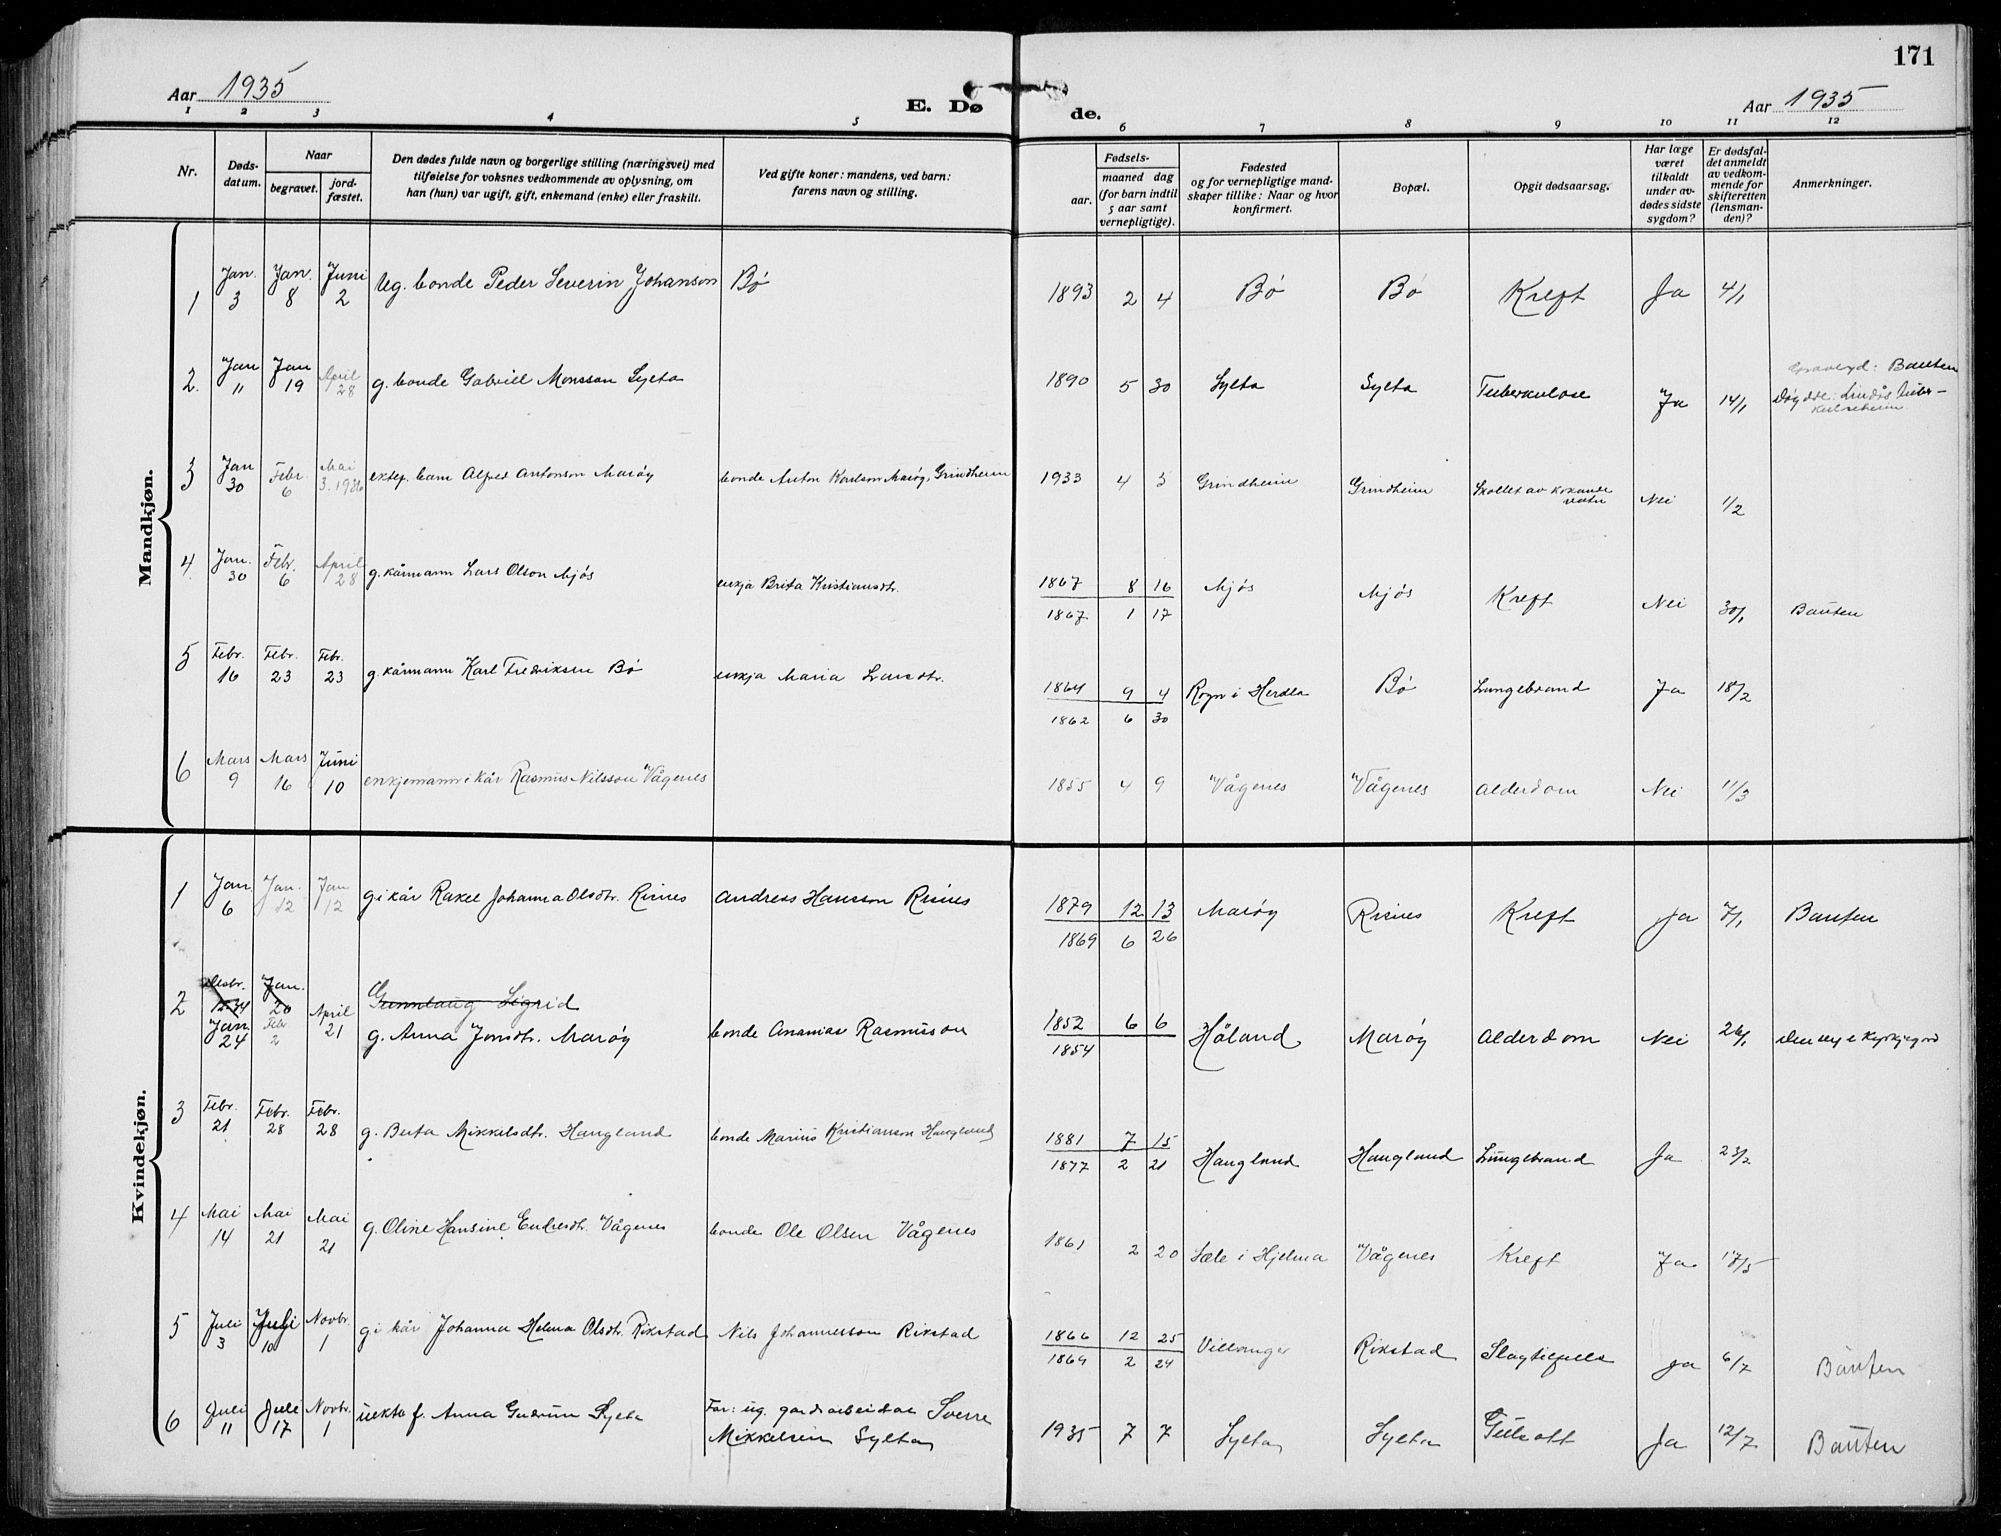 171
Aar 1935
E. Dø
de.
Aar 1935
1 2 3 4 5 6 7 8 9 10 11 12
Nr.
Døds-
datum.
Naar
begravet.
jord-
fæstet.
Den dødes fulde navn og borgerlige stilling (næringsvei) med
tilføielse for voksnes vedkommende av oplysning, om
han (hun) var ugift, gift, enkemand (enke) eller fraskilt.
Ved gifte koner: mandens, ved barn:
farens navn og stilling.
Fødsels-
aar.
maaned dag
(for barn indtil
5 aar samt
vernepligtige).
Fødested
og for vernepligtige mand-
skaper tillike: Naar og hvor
konfirmert.
Bopæl.
Opgit dødsaarsag.
Har læge
været
tilkaldt
under av-
dødes sidste
sygdom?
Er dødsfal-
det anmeldt
av vedkom-
mende for
skifteretten
(lensman-
den)?
Anmerkninger.
Mandkjøn.
1 Jan. 3 Jan. 8 Juni 2 Ug. bonde Peder Severin Johanson Bø 1893 2 4 Bø Bø Kreft Ja 4/1
2. Jan 11 Jan 19 April 28 g. bonde Gabriel Monsson Sylta 1890 5 30 Sylta Sylta Tuberkulose Ja 14/1 Bauten
3 Jan 30 Febr. 6 Mai 3. 1936 ektef. barn Alfred Antonson Marøy bonde Anton Karlson Marøy, Grindheim 1933 4 5 Grindheim Grindheim Skollet av kokande vatn Nei 1/2
4 Jan. 30 Febr. 6 April 28 g. kårmann Lars Olson Mjøs enkja Brita Kristiansdtr. 1867 8 16 Mjøs Mjøs Kreft Nei 30/1 Bauten
1867 1 17
5 Febr. 16 Febr. 23 Febr. 23 g. kårmann Karl Fredriksen Bø enkja Maria Larsdtr. 1864 9 4 i Herdla Bø Lungebrand Ja 18/2
1862 6 30
6 Mars 9 Mars 16 Juni 10 enkjemann i kår Rasmus Nilsson Vågenes 1855 4 9 Vågenes Vågenes Alderdom Nei 11/3
Kvindekjøn.
1 Jan 6 Jan. 12 Jan 12 g. i kår Rakel Johanna Olsdtr. Risnes Andreas Hansson Risnes 1879 12 13 Marøy Risnes Kreft Ja 7/1 Bauten
1869 6 26
2 Desbr. Jan. 20 Gunnlaug Sigrid
Jan 24 Febr 2 April 21 g. Anna Jonsdtr. Marøy bonde Ananias Rasmusson 1852 6 6 Håland Marøy Alderdom Nei 26/1 Den nye kyrkjegard
1854
3 Febr. 21 Febr. 28 Febr. 28 g. Berta Mikkelsdtr. Haugland bonde Marius Kristianson Haugland 1881 7 15 Haugland Haugland Lungebrand Ja 23/2
1877 2 21
4 Mai 14 Mai 21 Mai 21 g. Oline Hansine Endresdtr. Vågenes bonde Ole Olsen Vågenes 1861 2 20 Sæle i Hjelma Vågenes Kreft Ja 17/5
5 Juli 3 Juli 10 Novbr. 1 g i kår Johanna Helena Olsdtr. Rikstad Nils Johannesson Rikstad 1866 12 25 Villanger Rikstad Slagtilfelle Ja 6/7 Bauten
1869 2 24
6 Juli 11 Juli 17 Novbr. 1 uekte f. Anna Gudrun Sylta Far: ug. gardsarbeidar Sverre 1935 7 7 Sylta Sylta Gulsott Ja 12/7 Bauten
Mikkelsen Sylta